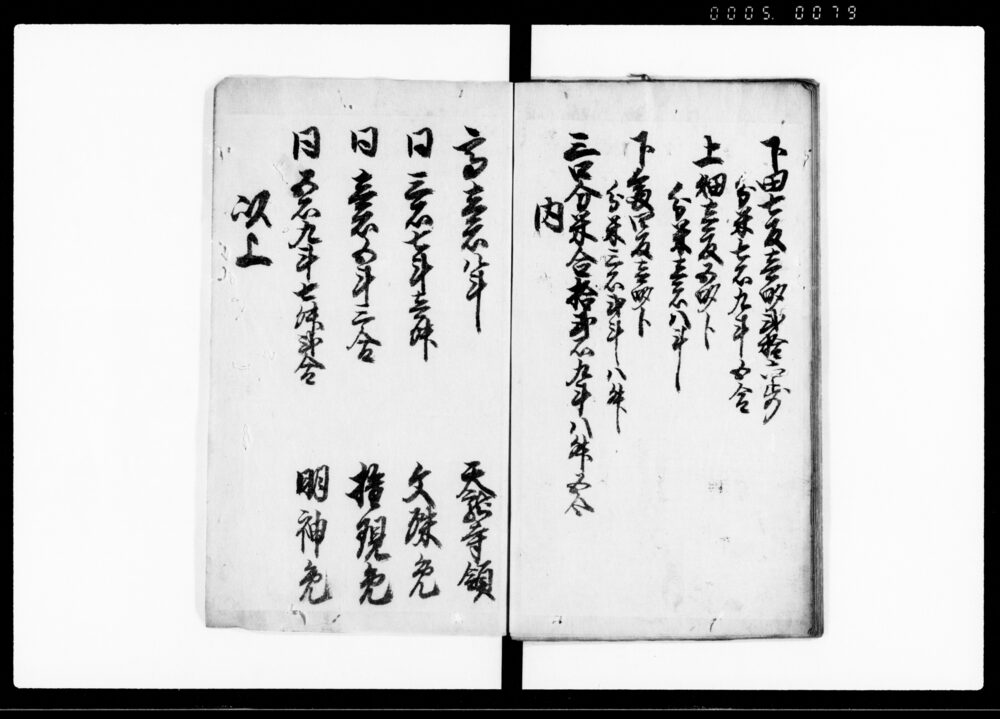 0005. 0079
下田七反壱畝弐拾六歩
分米七石九斗五合
上畑壱反五畝ト
分米壱石八斗
下畠四反壱畝ト
分米三石弐斗八升
三口分米合拾弐石九斗八升五合
内
高壱石八斗 天龍寺領
同三石七斗壱升 文殊免
同壱石五斗三合 権現免
同五石九斗七升弐合 明神免
以上